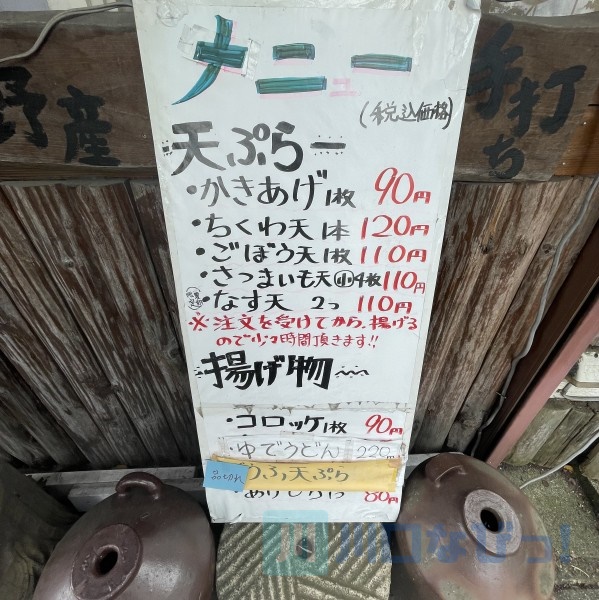 メニュー
(税込価格)
手打ち
野産
天ぷらー
・かきあげ1枚 90円
・ちくわ天1本 120円
・ごぼう天1枚 110円
・さつまいも天小4枚 110円
・なす天 2つ 110円
※注文を受けてから、揚げる
ので少々時間頂きます!!
揚げ物
・コロッケ1枚 90円
・ゆでうどん 220
品切れ
天ぷら
80円
川口なびっ!